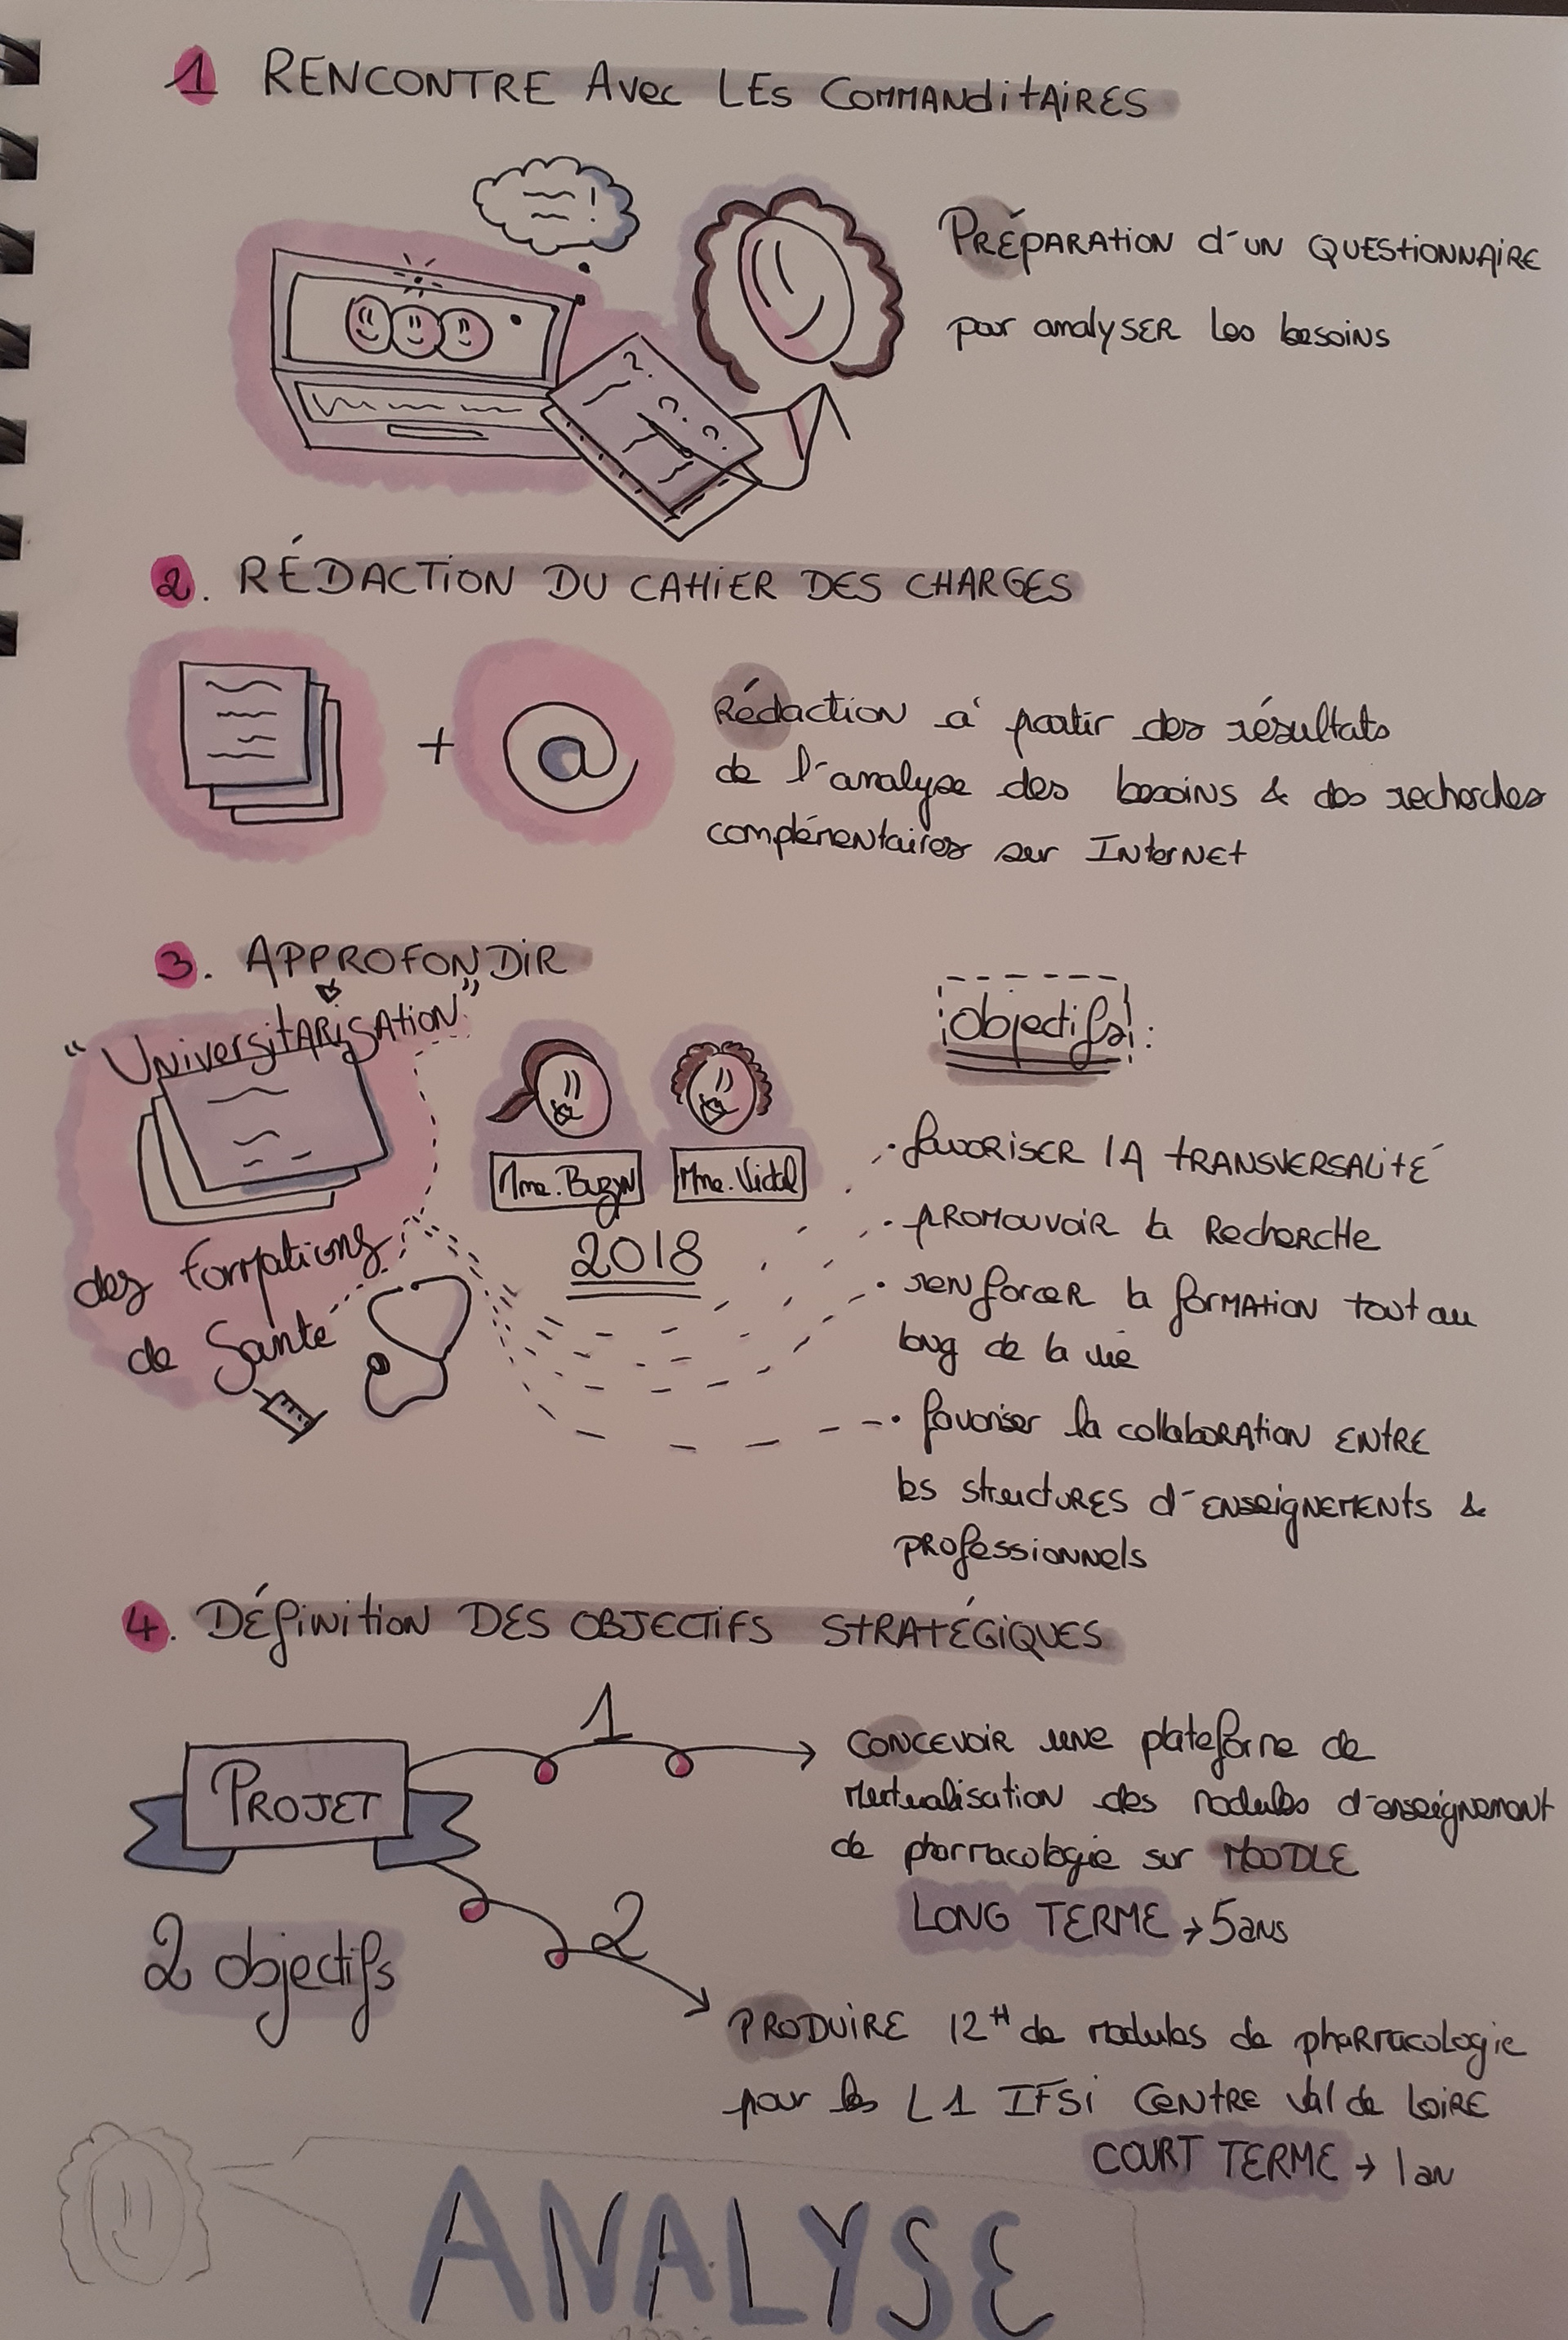 1 RENCONTRE AVEC LES COMMANDITAIRES
PRÉPARATION d'UN QUESTIONNAIRE
par analySER les besoins
2. RÉDACTION DU CAHIER DES CHARGES
Rédaction à partir des résultats
de l'analyse des besoins & des recherches
complémentaires sur INterNEt
3. APPROFONDIR
"UNiversitARiSAtiON"
des formations
de Santé
Mme. BuzyN
Mme. Vidal
2018
Objectifs :
• favoRiSER lA tRANSVERSALitÉ
• PROMOUVOiR la RecheRCHE
• renforcER la foRMAtiON tout au
long de la vie
• favoriser la collaboRAtiON ENtRE
les structURES d'ENseigNEMENts &
PROfessiONNels
4. DÉfiNitiON DES OBJECTiFS StRATÉGiQUES
PROJET
2 objectifs
1
CONCEVOiR uNe plateforme de
Mutualisation des modules d'enseignement
de pharmacologie sur MOODLE
LONG TERME → 5 ans
2
PRODUiRE 12H de modules de phaRmacologie
pour les L1 IFSi CeNtRE Val de LOiRE
COURT TERME → 1 an
ANALYSE